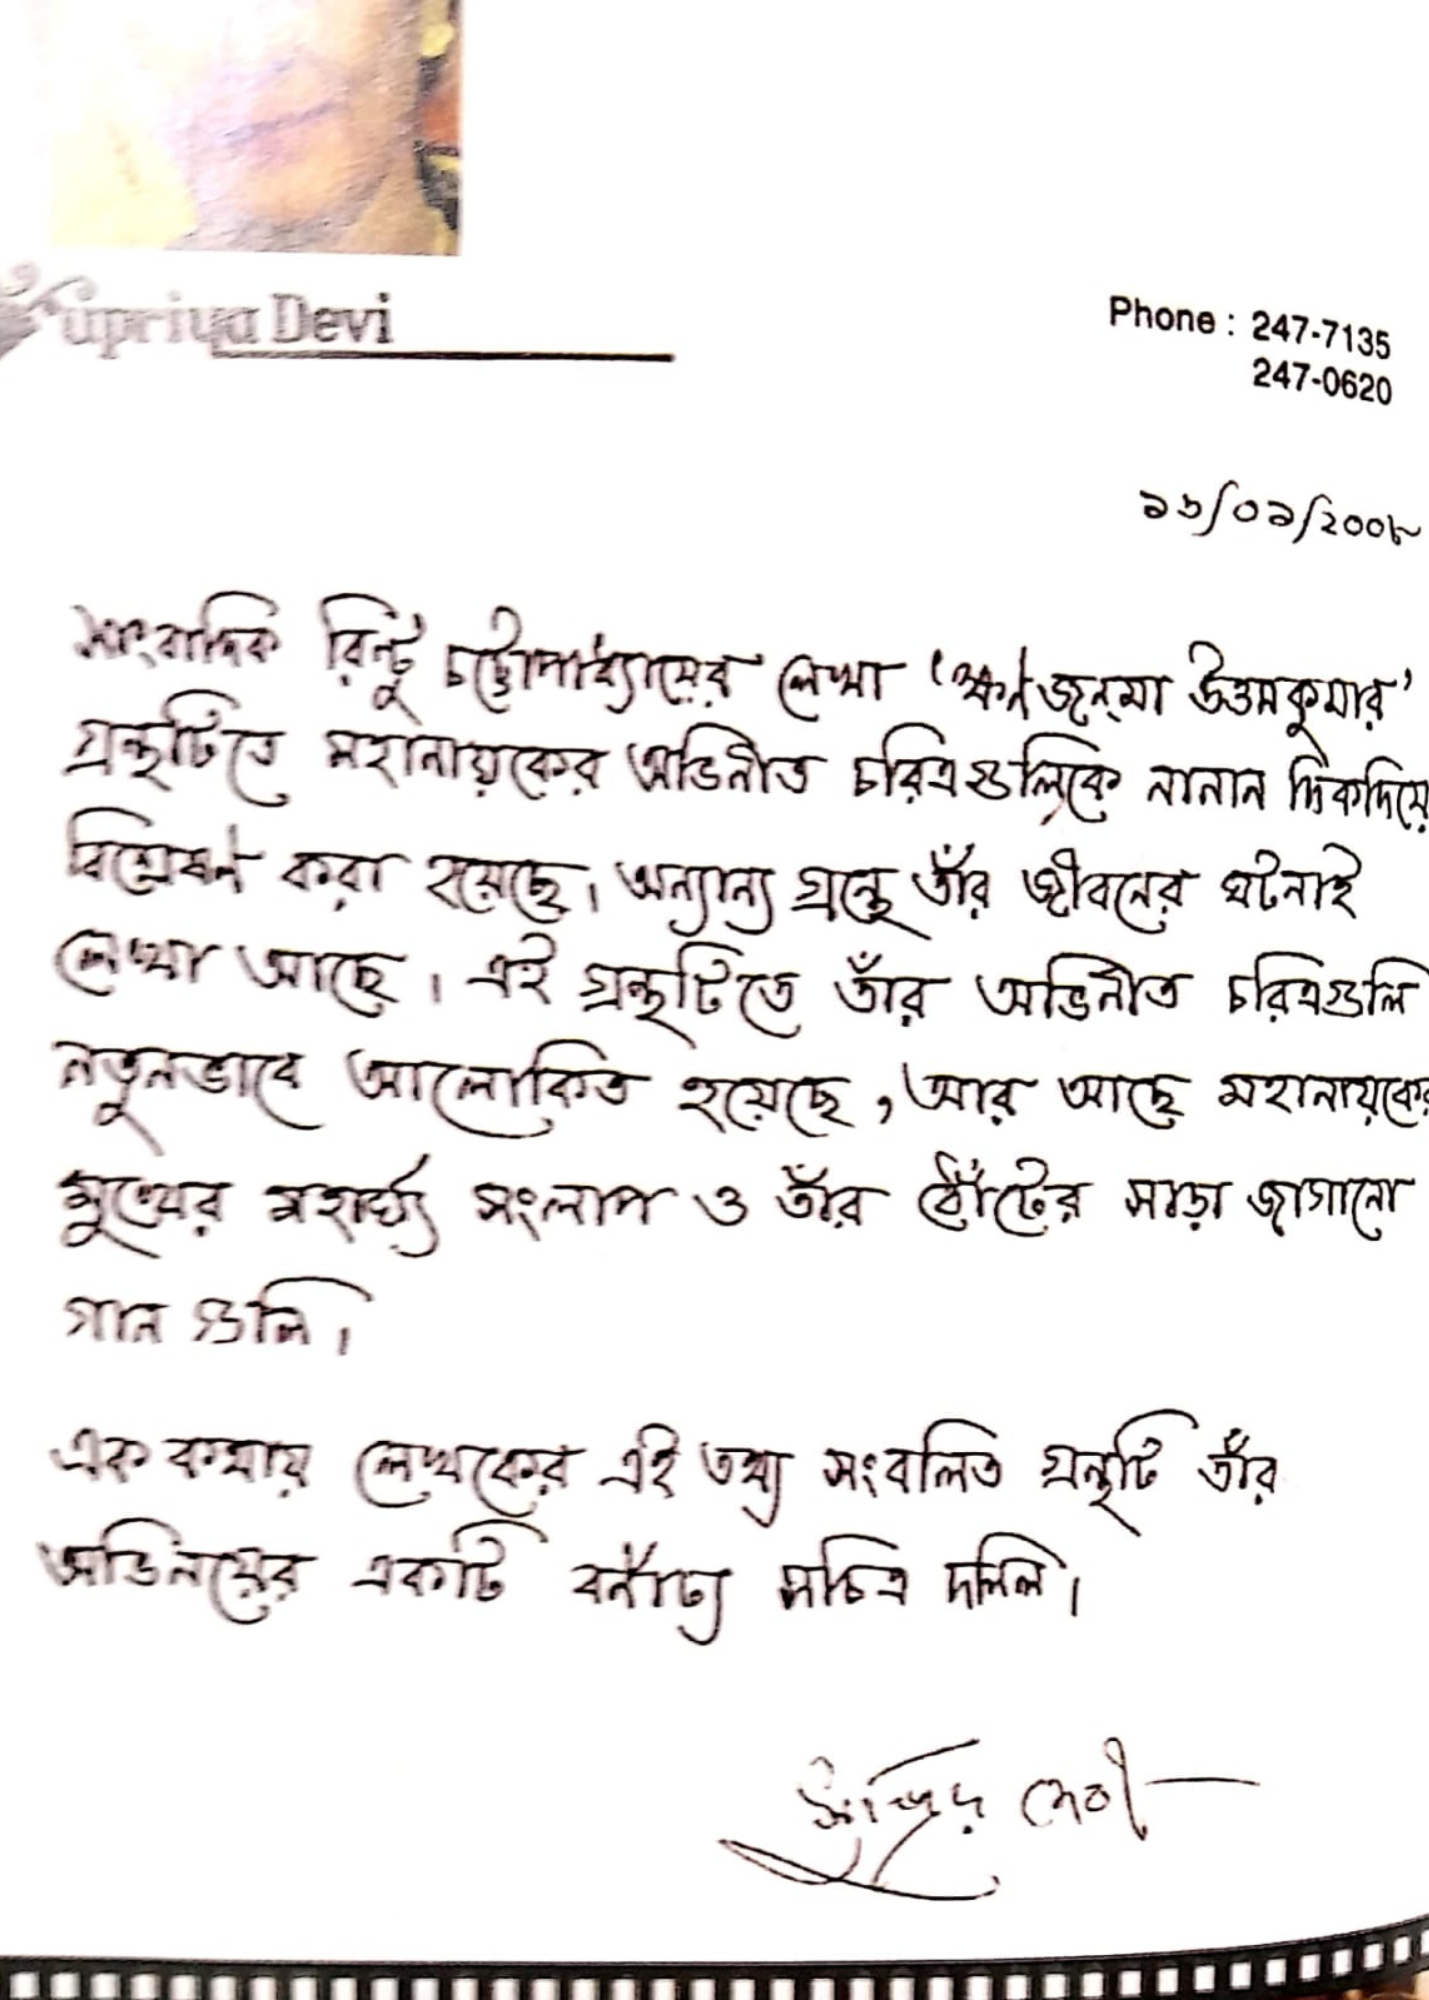 Supriya Devi
Phone : 247-7135
247-0620
১৬/০৯/২০০৮
সাংবাদিক রিন্টু চট্টোপাধ্যায়ের লেখা ‘ক্ষণজন্মা উত্তমকুমার’
গ্রন্থটিতে মহানায়কের অভিনীত চরিত্রগুলিকে নানান দিকদিয়ে
বিশ্লেষণ করা হয়েছে। অন্যান্য গ্রন্থে তাঁর জীবনের ঘটনাই
লেখা আছে। এই গ্রন্থটিতে তাঁর অভিনীত চরিত্রগুলি
নতুনভাবে আলোকিত হয়েছে, আর আছে মহানায়কের
মুখের মহার্ঘ্য সংলাপ ও তাঁর ঠোঁটের সাড়া জাগানো
গান গুলি।
এক কথায় লেখকের এই তথ্য সংবলিত গ্রন্থটি তাঁর
অভিনয়ের একটি বর্ণাঢ্য সচিত্র দলিল।
সুপ্রিয়া দেবী